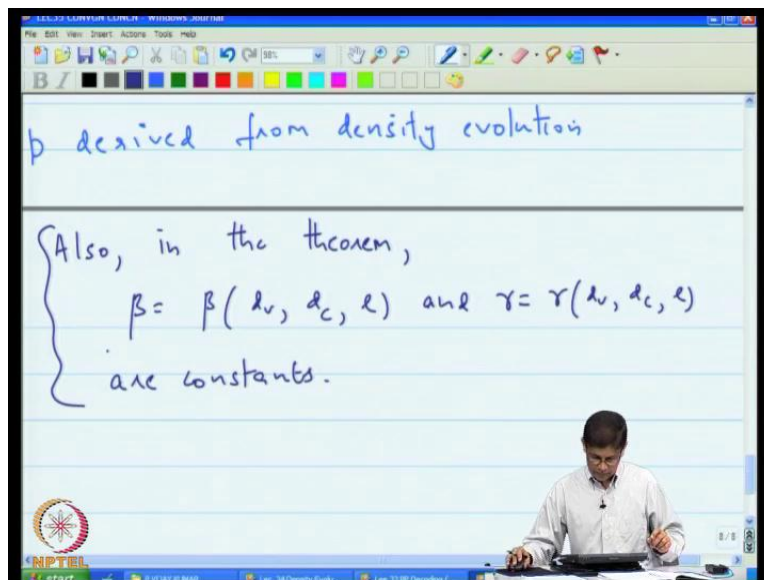 LEC35 CONVGN CONCN - Windows Journal
File Edit View Insert Actions Tools Help
98%
B I
p derived from density evolution
Also, in the theorem,
β = β(dv, dc, l) and γ = γ(dv, dc, l)
are constants.
8/8
NPTEL
start